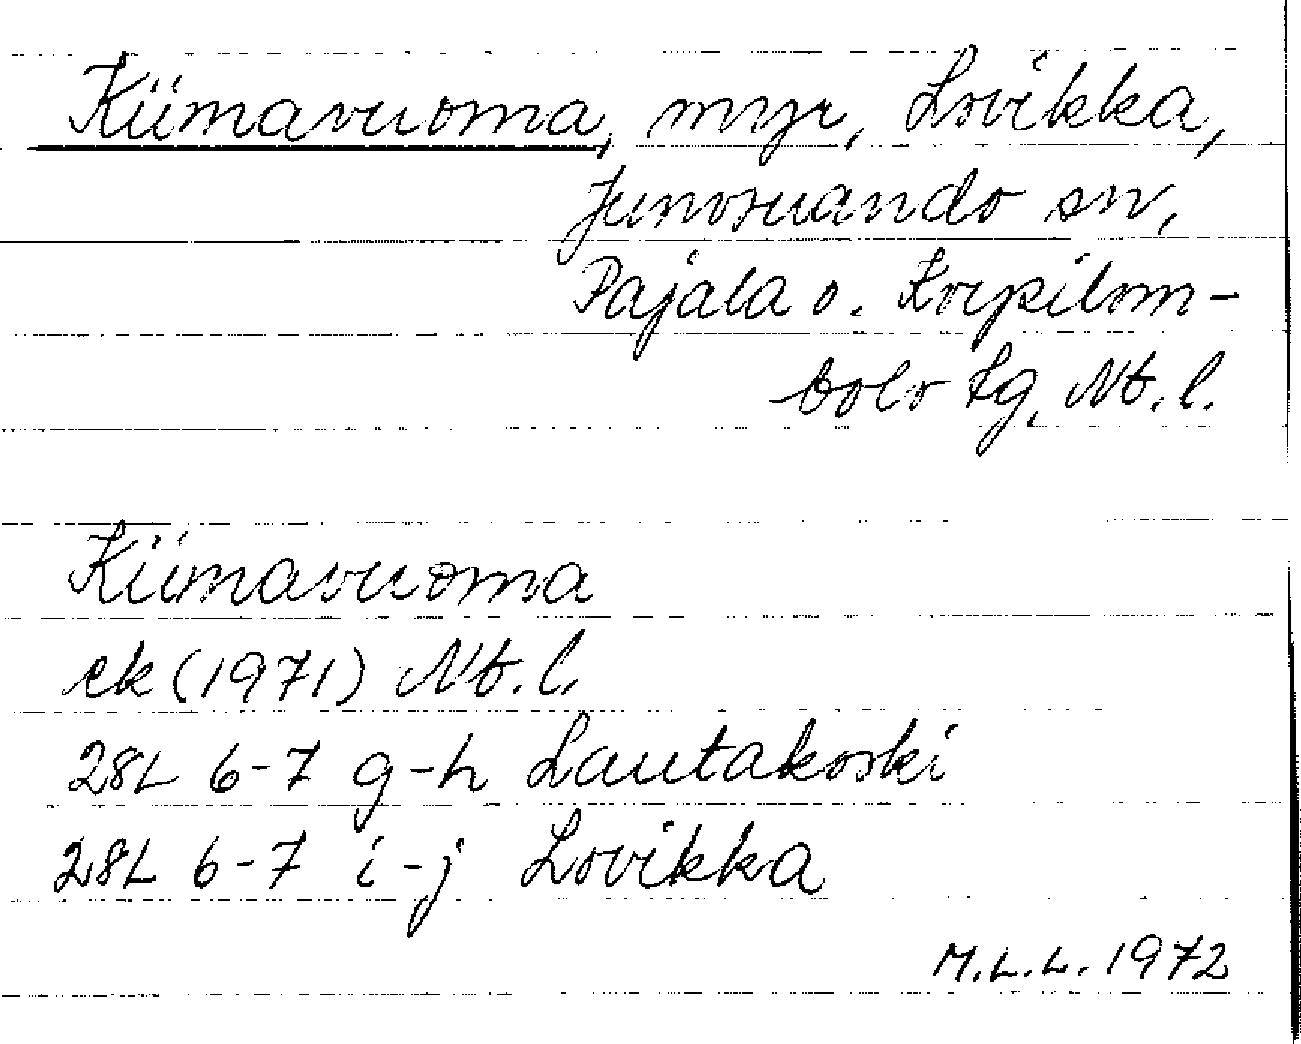 Kiimavuoma, myr, Lovikka,
Junosuando sn,
Pajala o. Korpilom-
bolo tg, Nb.l.
Kiimavuoma
ek (1971) Nb.l.
28L 6-7 g-h Lautakoski
28L 6-7 i-j Lovikka
M.L.L. 1972